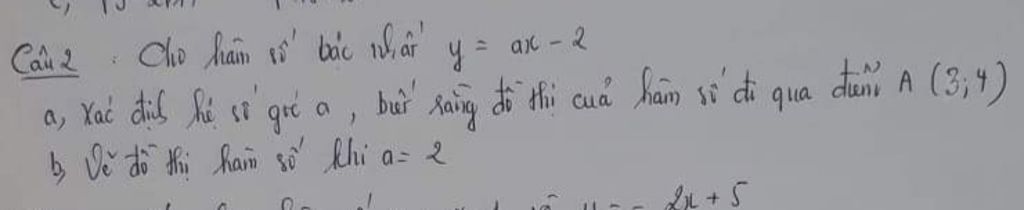 Câu 2 : Cho hàm số bậc nhất y = ax - 2
a, Xác định hệ số góc a, biết rằng đồ thị của hàm số đi qua điểm A (3;4)
b, Vẽ đồ thị hàm số khi a = 2
2x + 5